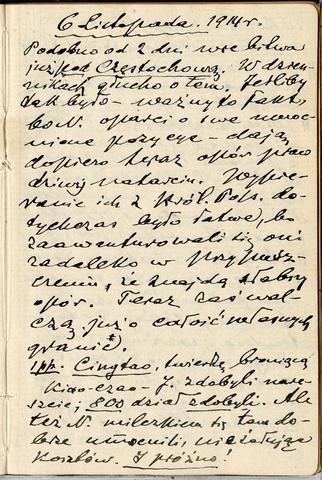 6 Listopada. 1914 r.
Podobno od 2 dni wre bitwa
już pod Częstochową. W dzien-
nikach głucho o tem. Jeśliby
tak było - ważny to fakt,
bo N. oparci o swe umoc-
nione pozycye - dają
dopiero teraz opór praw
dziwy natarciu. Wypie-
ranie ich z Król. Pols. do-
tychczas było łatwe, bo
zaawenturowali się oni
zadaleko w przypusz-
czeniu, że znajdą słaby
opór. Teraz zaś wal-
czą już o całość własnych
granic*).
Cingtao, twierdzę broniącą
Kiao-czao - J. zdobyli nare-
szcie; 800 dział zdobyli. Ale
też N. milczkiem się tam do-
brze umocnili, nie żałując
kosztów. I próżno!